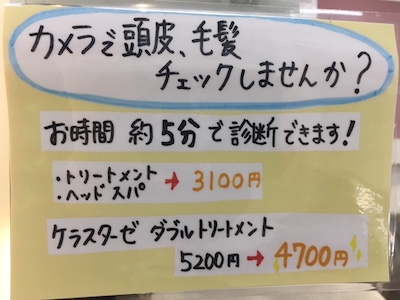 カメラで頭皮、毛髪
チェックしませんか?
お時間 約5分で診断できます!
・トリートメント
・ヘッドスパ → 3100円
ケラスターゼ ダブルトリートメント
5200円 → 4700円